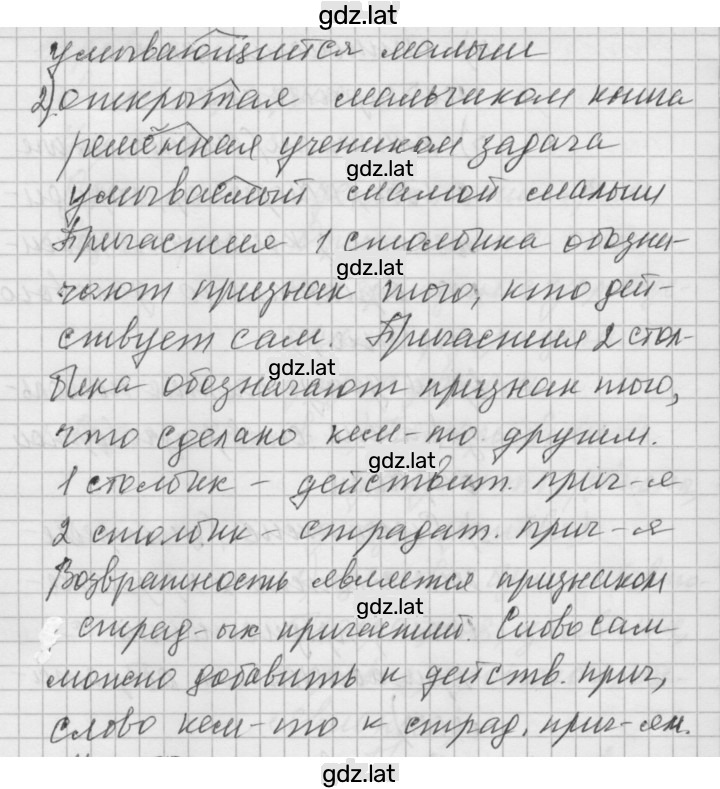 gdz.lat
умывающийся малыш
2) открытая мальчиком книга
решённая учеником задача
gdz.lat
умываемый мамой малыш
Причастия 1 столбика обозна-
gdz.lat
чают признак того, кто дей-
ствует сам. Причастия 2 стол-
gdz.lat
бика обозначают признак того,
что сделано кем-то другим.
gdz.lat
1 столбик – действит. прич-я
2 столбик – страдат. прич-я
Возвратность является признаком
gdz.lat
страд-ых причастий. Слово сам
можно добавить к действ. прич,
слово кем-то к страд. прич-ям.
gdz.lat